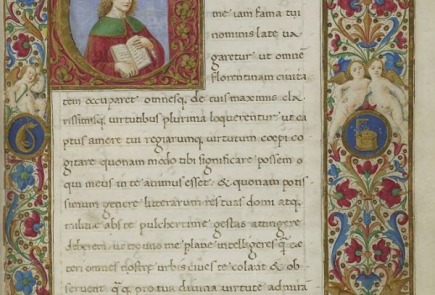 me iam fama tui
nominis late va
garetur ut omnē
florentinam civita
tem occuparet omnesq; de tuis maximis cla
rissimisq; virtutibus plurima loquerentur: ut ca
ptus amore tui regiarumq; virtutum coepi co
gitare quonam modo tibi significare possem
qui meus in te animus esset: & quonam potis
simum genere litterarum res tuas domi atq;
militiae abs te pulcherrime gestas attingere
deberem: ut
me plane intelligeres
teri omnes nostrę urbis cives te colant & ob
servent q̃q; pro tua divina virtute admira